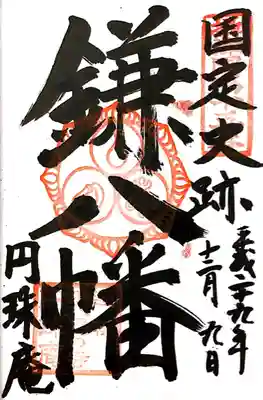 国定史跡
平成二十九年
十二月九日
鎌八幡
円珠庵